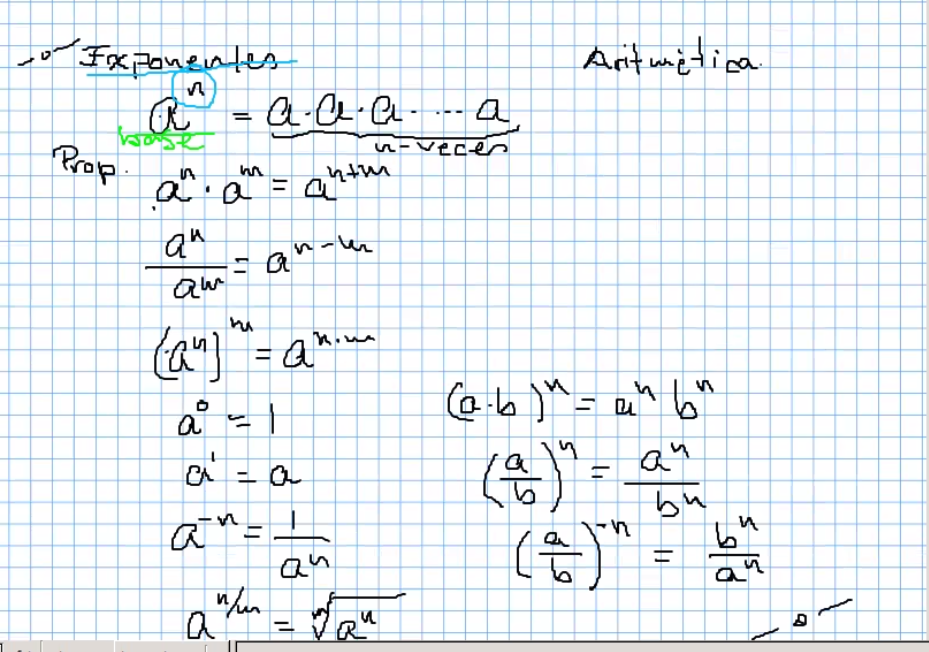 Exponentes
Aritmética
aⁿ = a·a·a· ... a
base
n-veces
Prop.
aⁿ · aᵐ = aⁿ⁺ᵐ
aⁿ/aᵐ = aⁿ⁻ᵐ
(aⁿ)ᵐ = aⁿ·ᵐ
a⁰ = 1
a¹ = a
a⁻ⁿ = 1/aⁿ
a^(n/m) = ᵐ√aⁿ
(a·b)ⁿ = aⁿ bⁿ
(a/b)ⁿ = aⁿ/bⁿ
(a/b)⁻ⁿ = bⁿ/aⁿ